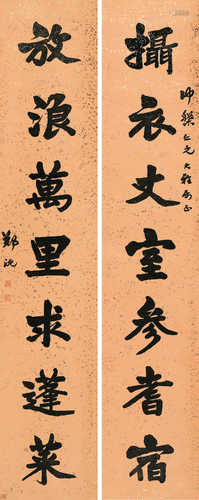 攝衣丈室參耆宿
帥馨仁兄大雅屬正
放浪萬里求蓬萊
鄭沅